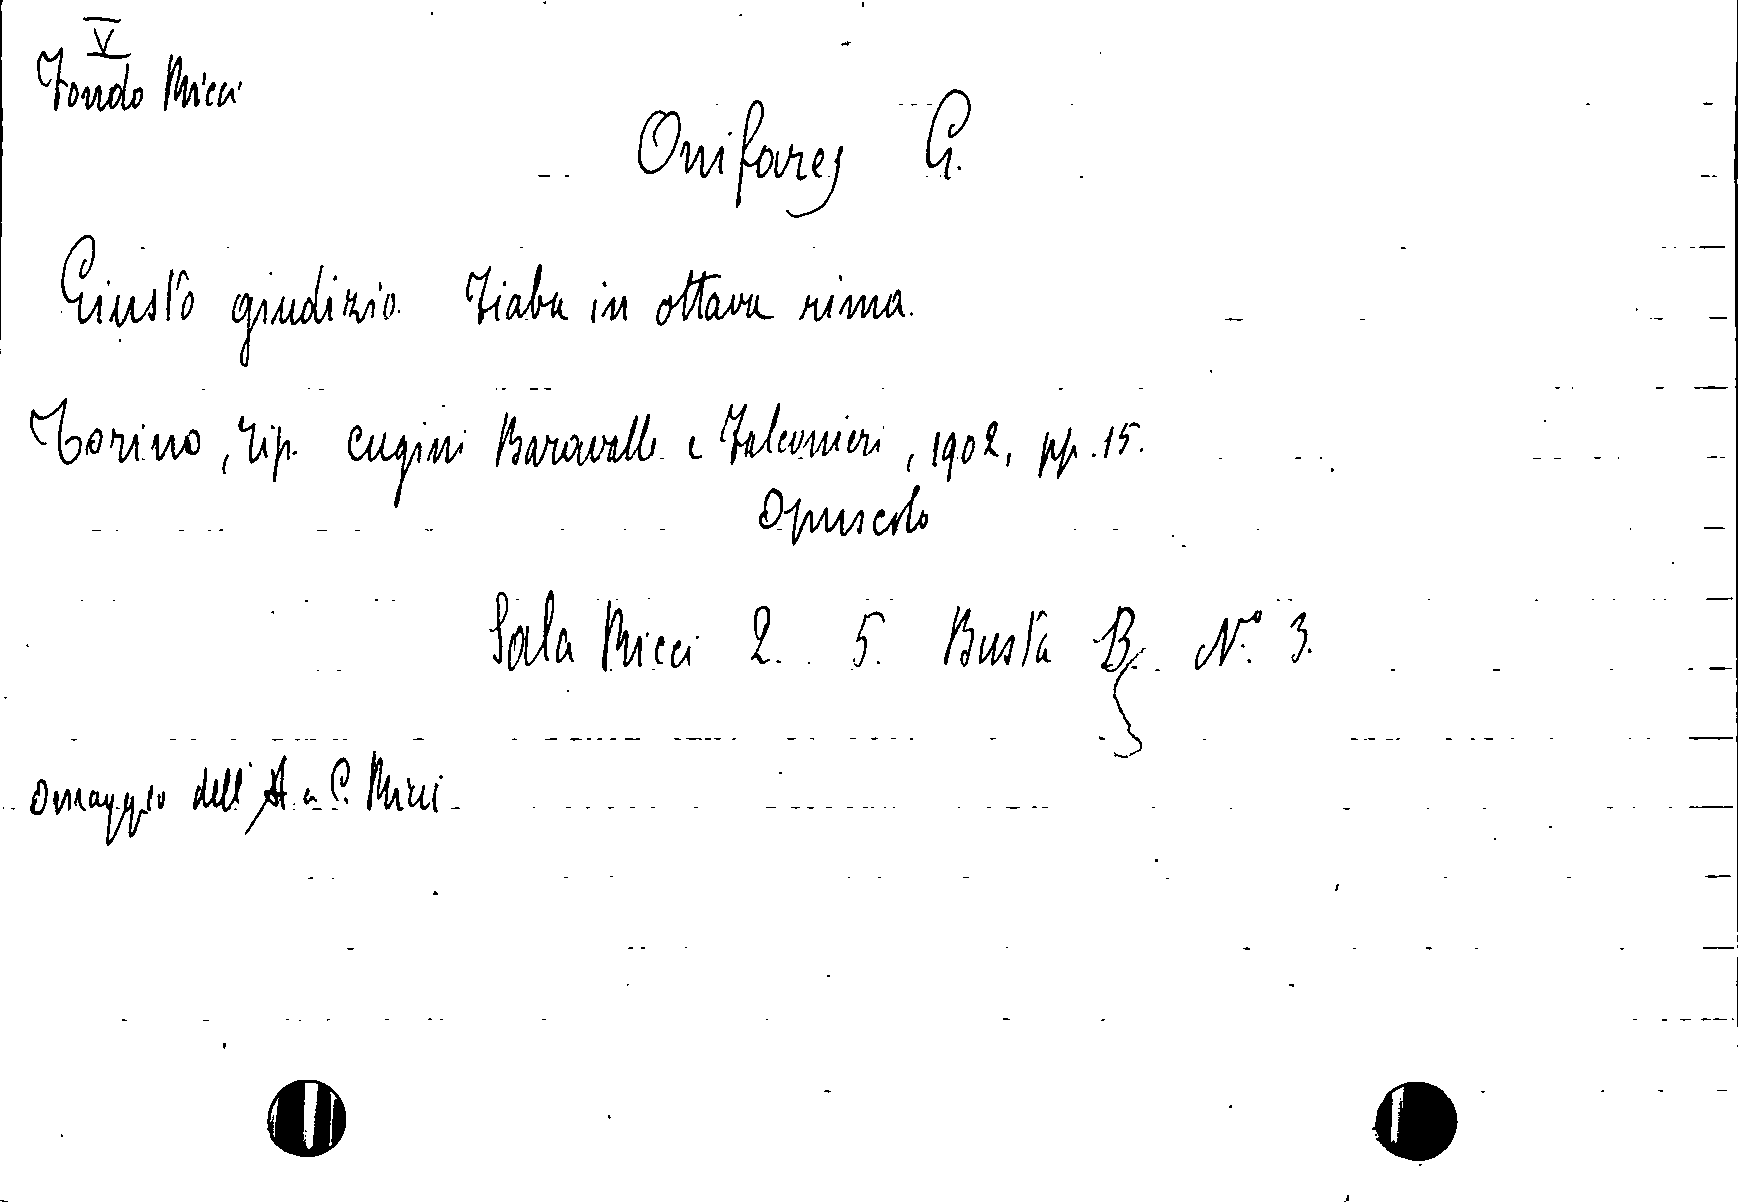 V
Fondo Ricci
Onifares G.
Giusto giudizio. Fiaba in ottava rima.
Torino, tip. cugini Baravalle e Falconieri, 1902, pp. 15.
opuscolo
Sala Ricci 2. 5. Busta B. N.° 3.
omaggio dell'A. a C. Ricci